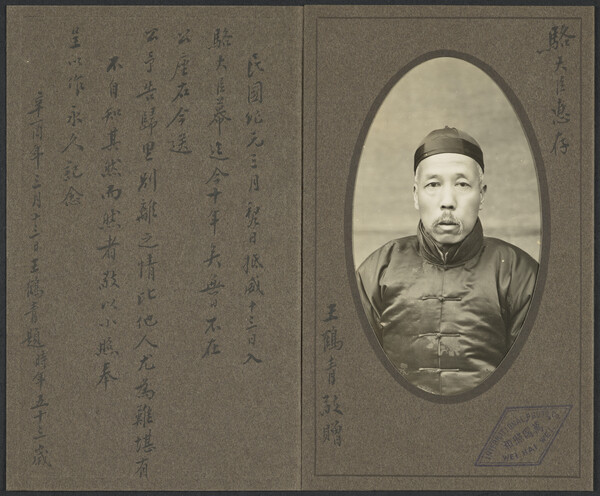 駱大臣惠存
王鶴青敬贈
WEI HAI WEI
民國紀元三月日抵威十三日入
駱大臣幕迄今十年矣無日不在
公座右今送
公予告歸里別離之情比他人尤為難堪有
不自知其然而然者敬以小照奉
呈以作永久紀念
辛酉年三月十三日王鶴青題時年五十三歲